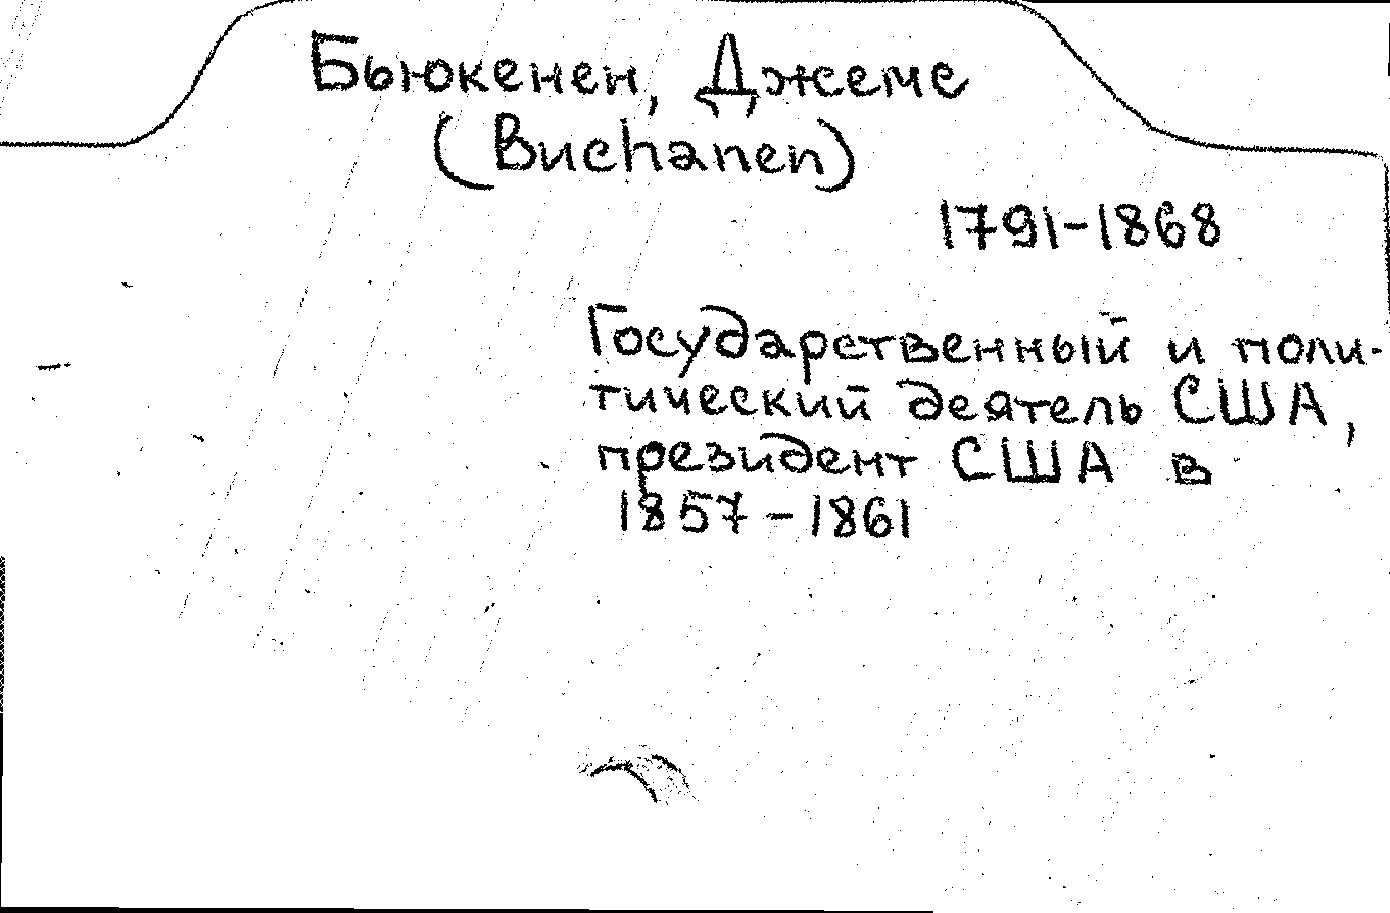 Бьюкенен, Джемс
(Buchanen)
1791-1868
Государственный и поли-
тический деятель США,
президент США в
1857-1861